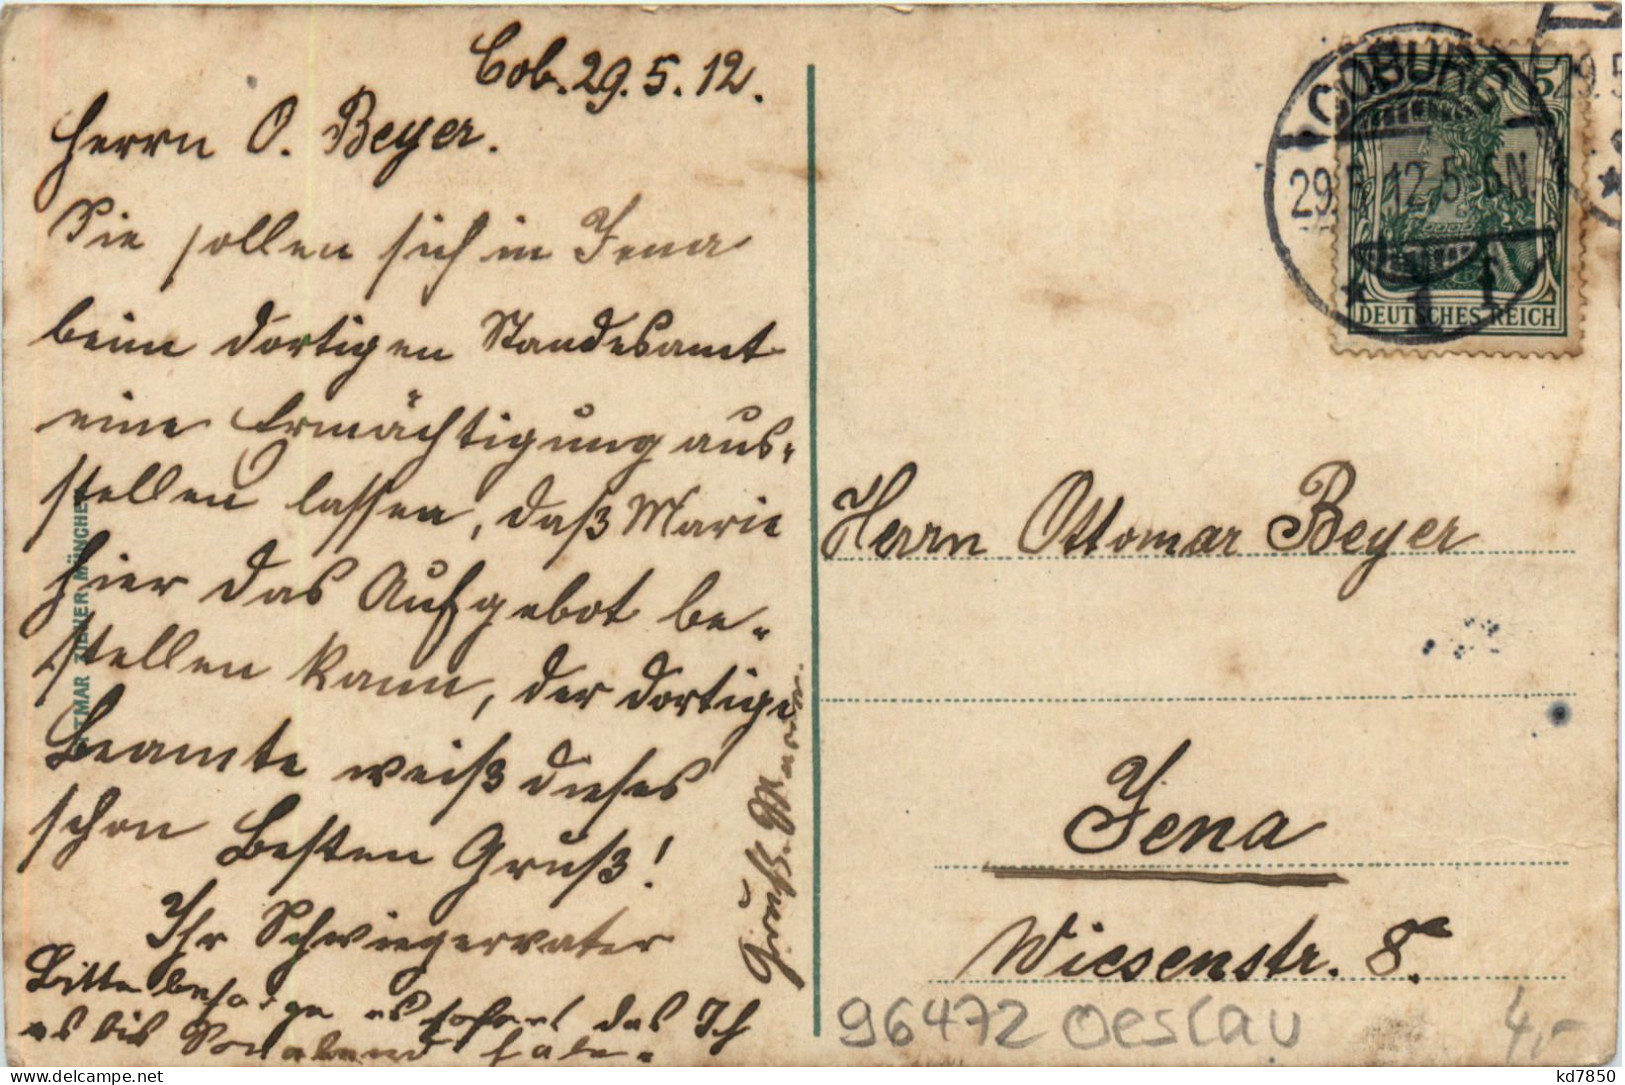 Cob. 29.5.12.
Herrn O. Beyer.
Sie sollen sich in Jena
beim dortigen Standesamt
eine Ermächtigung aus-
stellen lassen, daß Marie
hier das Aufgebot be-
stellen kann, der dortige
Beamte weiß dieses
schon Besten Gruß!
Ihr Schwiegervater
Bitte besorge es sofort das Ich
es bis Sonnabend habe.
COBURG
29.5.12.5-6N.
* 1 f
29.5
5
DEUTSCHES REICH
Herrn Ottomar Beyer
Jena
Wiesenstr. 8a.
96472 Oeslau
4,-
ZIEHER MÜNCHEN
kd7850